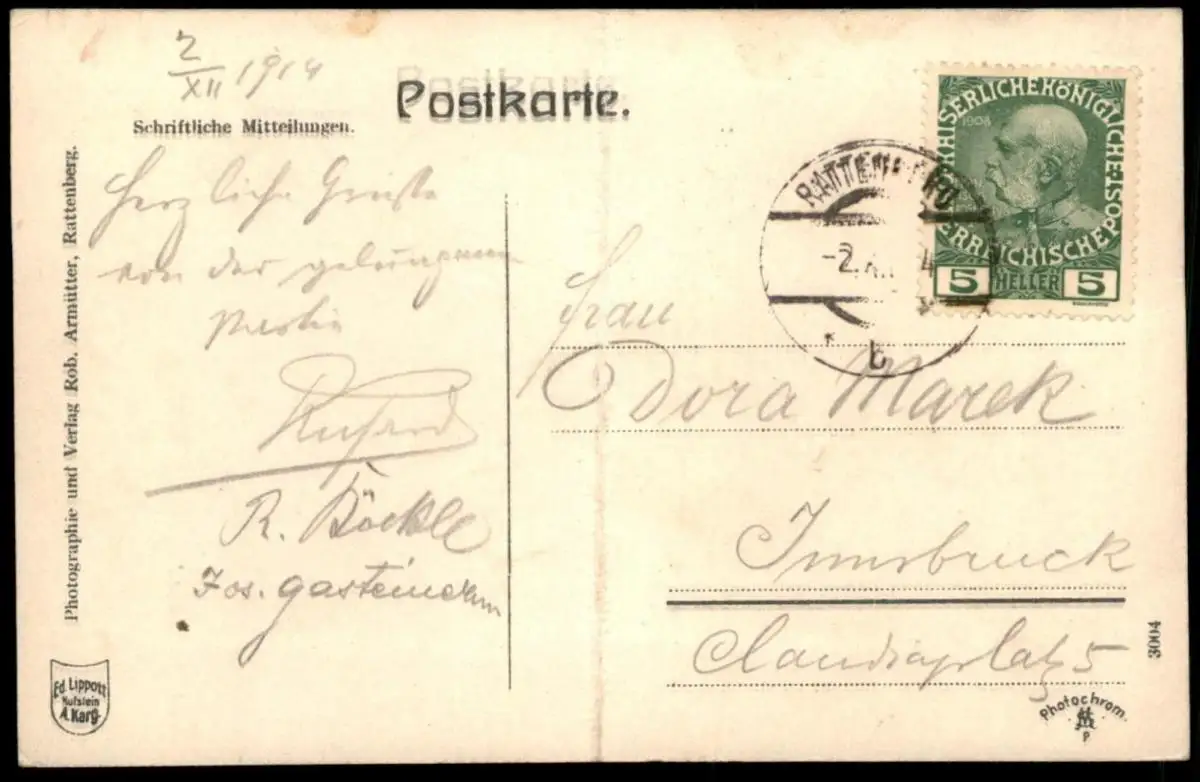 2/XII 1914
Postkarte.
Schriftliche Mitteilungen.
Herzliche Grüße
von der gelungenen
Partie
R. Böckle
Jos. Gasteiner
Frau
Dora Marek
Innsbruck
Claudiaplatz 5
KAISERLICHEKÖNIGLICHE·POST·
ÖSTERREICHISCHE
1908
5 HELLER 5
RATTENBERG
-2.
b
Photographie und Verlag Rob. Armütter, Rattenberg.
Ed. Lippott
Kufstein
A. Karg
3004
Photochrom.
P